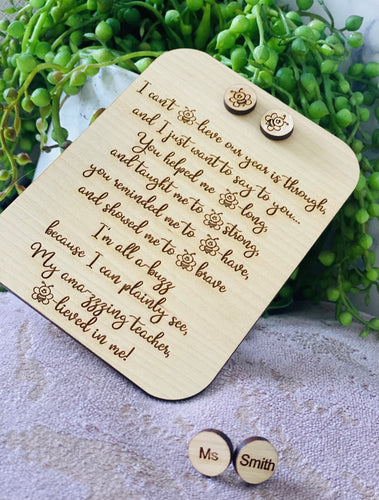 I can't lieve our year is through,
and I just want to say to you...
You helped me long,
and taught me to strong,
you reminded me to have,
and showed me to brave
I'm all a-buzz
because I can plainly see,
My ama-zzzing teacher,
lieved in me!
Ms Smith